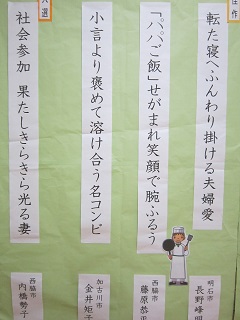 佳作
転た寝へふんわり掛ける夫婦愛
明石市
長野峰明
「パパご飯」せがまれ笑顔で腕ふるう
西脇市
藤原恭
小言より褒めて溶け合う名コンビ
加古川市
金井矩子
入選
社会参加 果たしきらきら光る妻
西脇市
内橋勢子